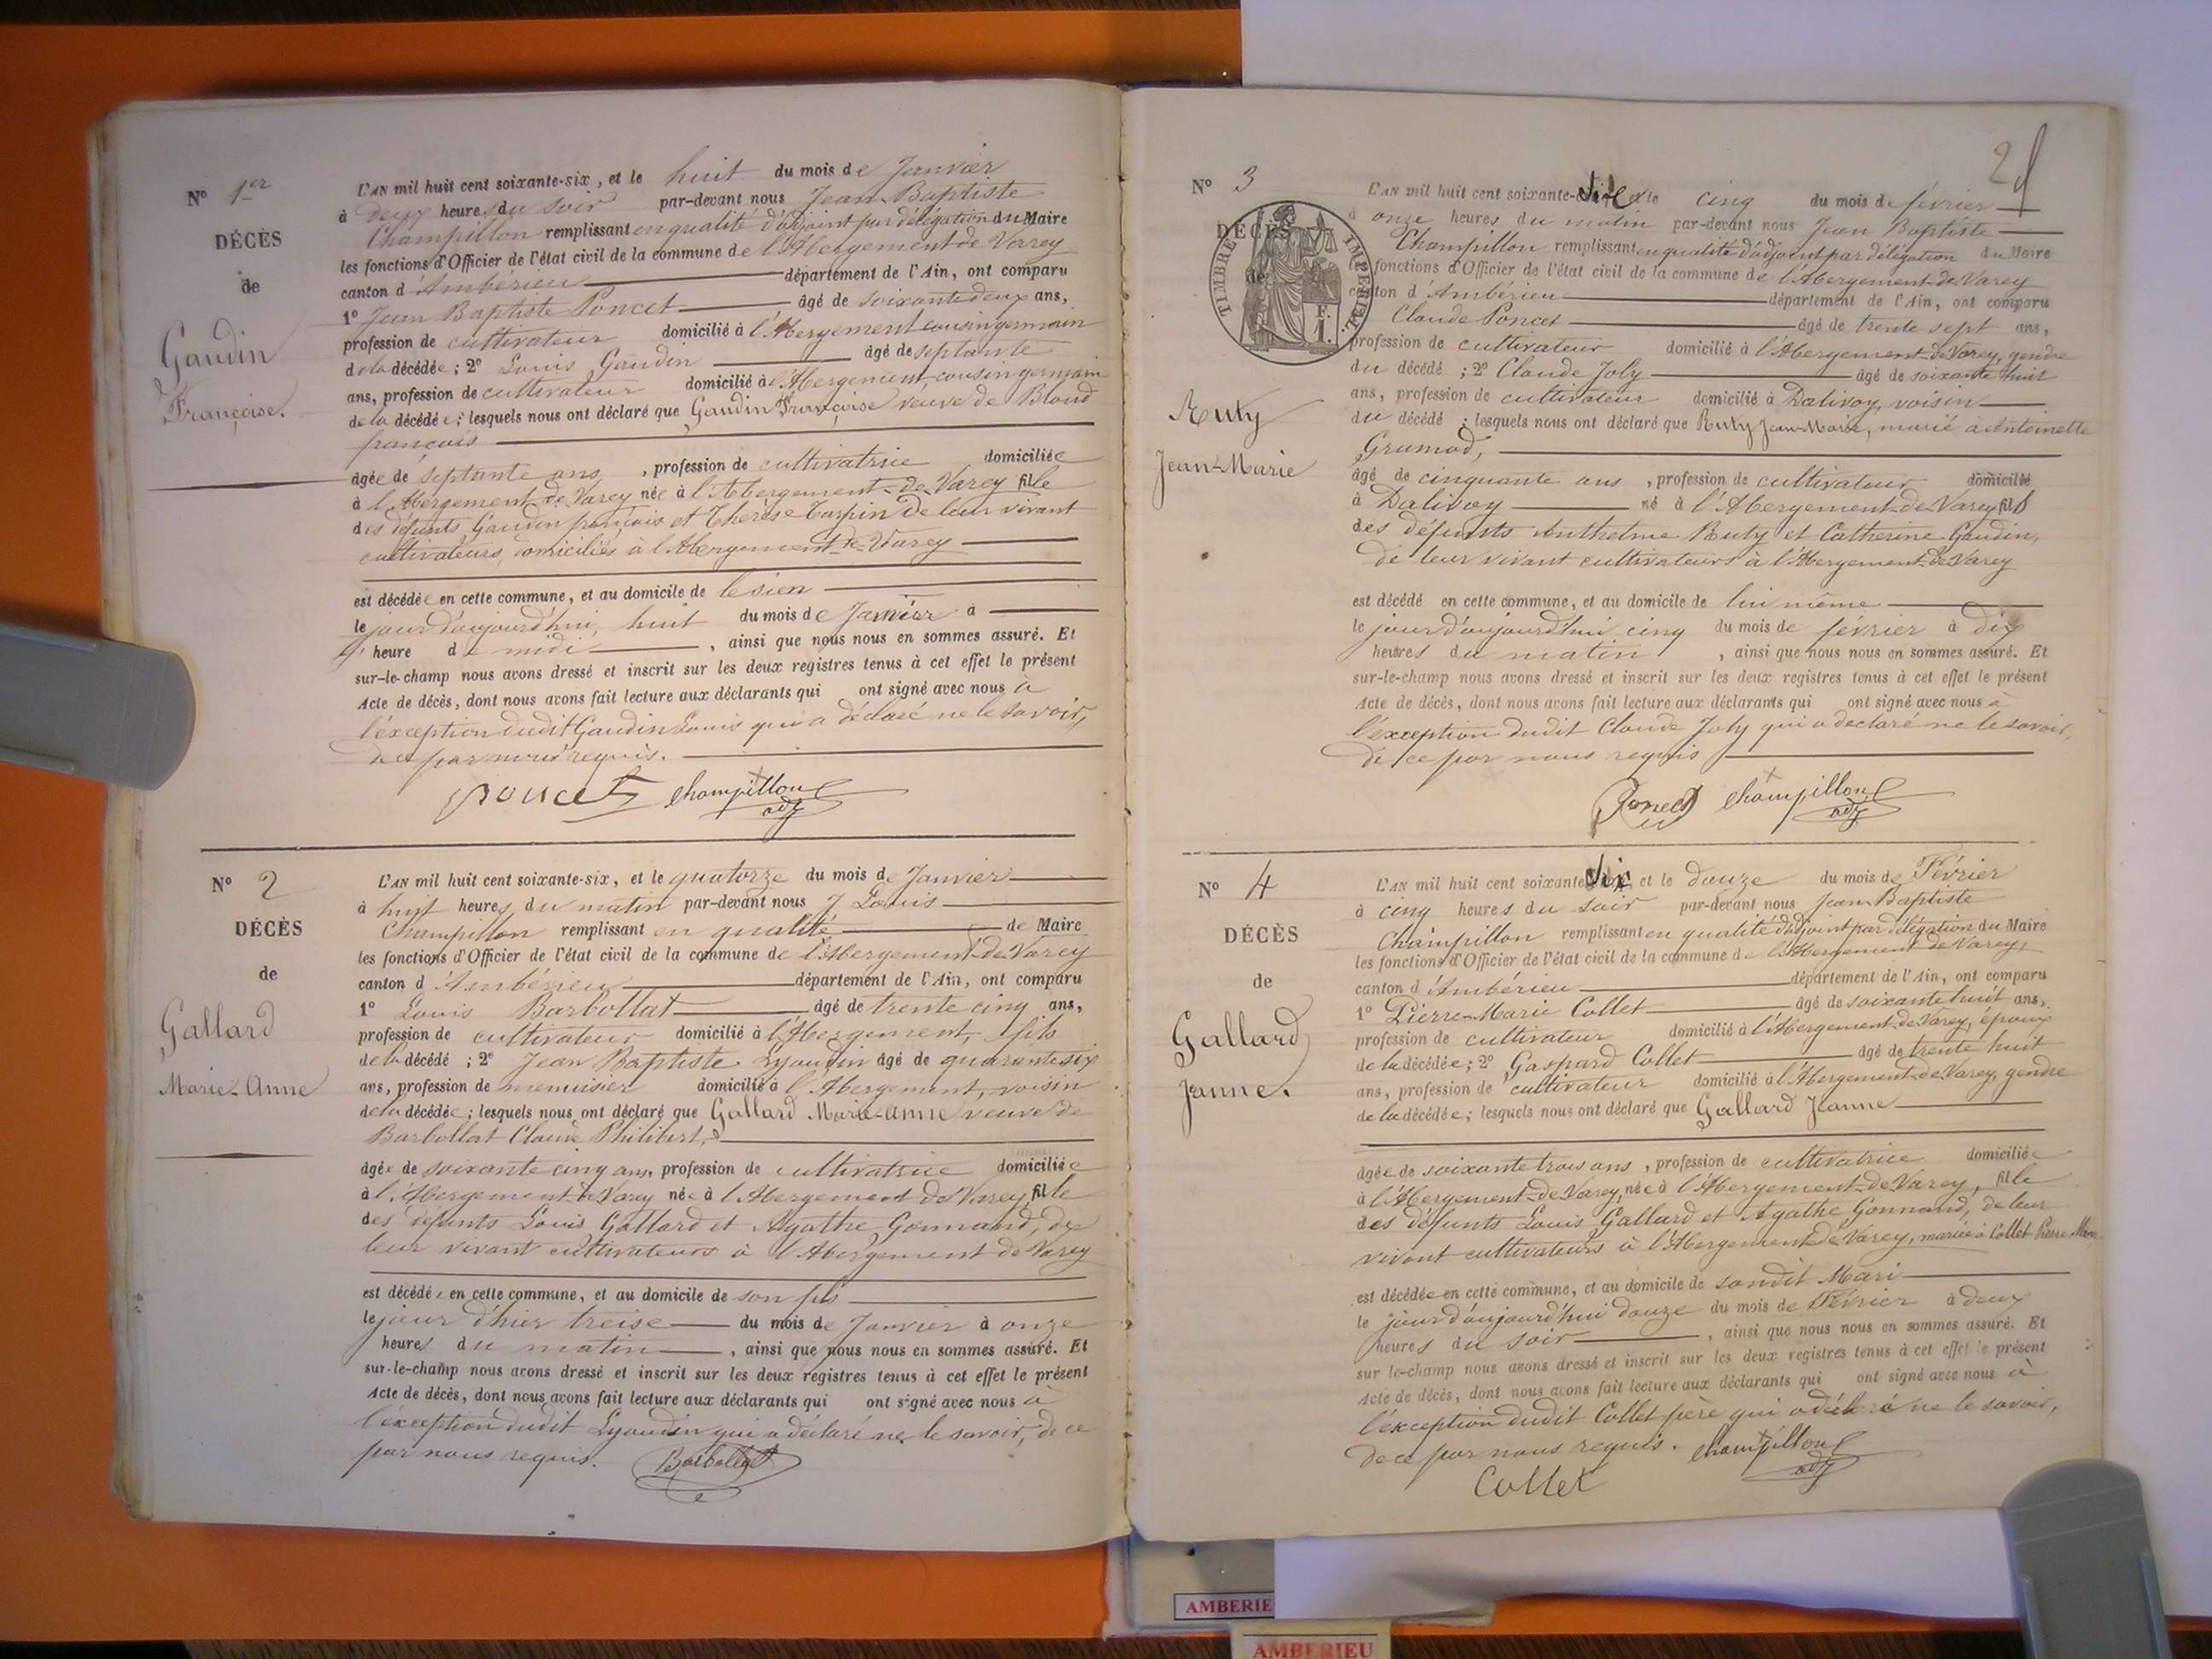 N° 1er
DÉCÈS
de
Gaudin
Françoise.
L'AN mil huit cent soixante-six, et le huit du mois de Janvier
à deux heures du soir par-devant nous Jean Baptiste
Champillon remplissant en qualité d'adjoint par délégation du Maire
les fonctions d'Officier de l'état civil de la commune de l'Abergement de Varey
canton d'Ambérieu département de l'Ain, ont comparu
1° Jean Baptiste Poncet âgé de soixante deux ans,
profession de cultivateur domicilié à l'Abergement cousin germain
de la décédée; 2° Louis Gaudin âgé de septante
ans, profession de cultivateur domicilié à l'Abergement, cousin germain
de la décédée; lesquels nous ont déclaré que Gaudin Françoise veuve de Blond
françois
âgée de septante ans, profession de cultivatrice domiciliée
à l'Abergement-de-Varey née à l'Abergement-de-Varey fille
des défunts Gaudin françois et Thérèse Tarpin de leur vivant
cultivateurs, domiciliés à l'Abergement-de-Varey
est décédée en cette commune, et au domicile de le sien
le jour d'aujourd'hui, huit du mois de Janvier à
heure de midi, ainsi que nous nous en sommes assuré. Et
sur-le-champ nous avons dressé et inscrit sur les deux registres tenus à cet effet le présent
Acte de décès, dont nous avons fait lecture aux déclarants qui ont signé avec nous à
l'exception dudit Gaudin Louis qui a déclaré ne le savoir,
de ce par nous requis.
poncet champillon
adj
N° 2
DÉCÈS
de
Gallard
Marie-Anne
L'AN mil huit cent soixante-six, et le quatorze du mois de Janvier
à huit heures du matin par-devant nous J Louis
Champillon remplissant en qualité de Maire
les fonctions d'Officier de l'état civil de la commune de l'Abergement-de-Varey
canton d'Ambérieu département de l'Ain, ont comparu
1° Louis Barbollat âgé de trente cinq ans,
profession de cultivateur domicilié à l'Abergement, fils
de la décédé; 2° Jean Baptiste Lyaudin âgé de quarante six
ans, profession de menuisier domicilié à l'Abergement, voisin
de la décédée; lesquels nous ont déclaré que Gallard Marie-Anne veuve de
Barbollat Claude Philibert,
âgée de soixante cinq ans, profession de cultivatrice domiciliée
à l'Abergement-de-Varey née à l'Abergement de Varey, fille
des défunts Louis Gallard et Agathe Gonnand, de
leur vivant cultivateurs à l'Abergement de Varey
est décédée en cette commune, et au domicile de son fils
le jour d'hier treise du mois de Janvier à onze
heures du matin, ainsi que nous nous en sommes assuré. Et
sur-le-champ nous avons dressé et inscrit sur les deux registres tenus à cet effet le présent
Acte de décès, dont nous avons fait lecture aux déclarants qui ont signé avec nous à
l'exception dudit Lyaudin qui a déclaré ne le savoir, de ce
par nous requis. Barbollat
2
N° 3
DÉCÈS
de
TIMBRE IMPERIAL
F.
1.
Ruty
Jean-Marie
L'AN mil huit cent soixante-six et le cinq du mois de février
à onze heures du matin par-devant nous Jean Baptiste
Champillon remplissant en qualité d'adjoint par délégation du Maire
les fonctions d'Officier de l'état civil de la commune de l'Abergement-de-Varey
canton d'Ambérieu département de l'Ain, ont comparu
Claude Poncet âgé de trente sept ans,
profession de cultivateur domicilié à l'Abergement-de-Varey, gendre
du décédé; 2° Claude Joly âgé de soixante huit
ans, profession de cultivateur domicilié à Dalivoy, voisin
du décédé; lesquels nous ont déclaré que Ruty Jean-Marie, marié à Antoinette
Grumod,
âgé de cinquante ans, profession de cultivateur domicilié
à Dalivoy né à l'Abergement-de-Varey fils
des défunts Anthelme Ruty et Catherine Gaudin,
de leur vivant cultivateurs à l'Abergement-de-Varey
est décédé en cette commune, et au domicile de lui même
le jour d'aujourd'hui cinq du mois de février à dix
heures du matin, ainsi que nous nous en sommes assuré. Et
sur-le-champ nous avons dressé et inscrit sur les deux registres tenus à cet effet le présent
Acte de décès, dont nous avons fait lecture aux déclarants qui ont signé avec nous à
l'exception dudit Claude Joly qui a déclaré ne le savoir,
de ce par nous requis
Poncet champillon
adj
N° 4
DÉCÈS
de
Gallard
Janne.
L'AN mil huit cent soixante six, et le douze du mois de Février
à cinq heures du soir par-devant nous Jean-Baptiste
Champillon remplissant en qualité d'adjoint par délégation du Maire
les fonctions d'Officier de l'état civil de la commune de l'Abergement de Varey,
canton d'Ambérieu département de l'Ain, ont comparu
1° Pierre-Marie Collet âgé de soixante huit ans,
profession de cultivateur domicilié à l'Abergement-de-Varey, époux
de la décédée; 2° Gaspard Collet âgé de trente huit
ans, profession de cultivateur domicilié à l'Abergement-de-Varey, gendre
de la décédée; lesquels nous ont déclaré que Gallard Jeanne
âgée de soixante trois ans, profession de cultivatrice domiciliée
à l'Abergement-de-Varey, née à l'Abergement-de-Varey, fille
des défunts Louis Gallard et Agathe Gonnand, de leur
vivant cultivateurs à l'Abergement de Varey, mariée à Collet Pierre Marie
est décédée en cette commune, et au domicile de sondit Mari
le jour d'aujourd'hui douze du mois de Février à deux
heures du soir, ainsi que nous nous en sommes assuré. Et
sur le-champ nous avons dressé et inscrit sur les deux registres tenus à cet effet le présent
Acte de décès, dont nous avons fait lecture aux déclarants qui ont signé avec nous à
l'exception dudit Collet père qui a déclaré ne le savoir,
de ce par nous requis. champillon
adj
Collet
AMBERIE
AMBERIEU